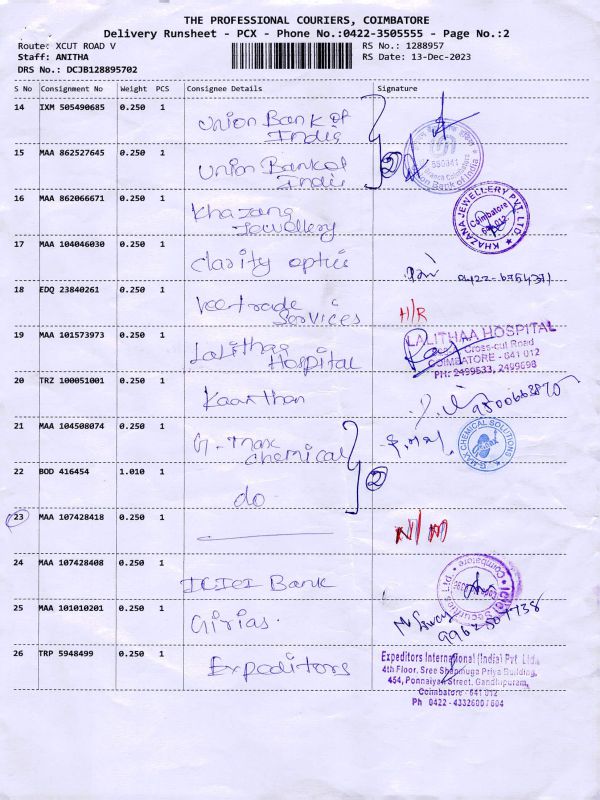 THE PROFESSIONAL COURIERS, COIMBATORE
Delivery Runsheet - PCX - Phone No.:0422-3505555 - Page No.:2
Route: XCUT ROAD V
RS No.: 1288957
Staff: ANITHA
RS Date: 13-Dec-2023
DRS No.: DCJB128895702
S No Consignment No Weight PCS Consignee Details Signature
14 IXM 505490685 0.250 1 Union Bank of
India
15 MAA 862527645 0.250 1 Union Bank of
India
2
16 MAA 862066671 0.250 1 Khazana
Jewellery
KHAZANA JEWELLERY PVT. LTD.
Coimbatore
17 MAA 104046030 0.250 1 Clarity optics
18 EDQ 23840261 0.250 1 Veetrade
Services
H/R
19 MAA 101573973 0.250 1 Lalithaa
Hospital
LALITHAA HOSPITAL
Cross-cut Road
COIMBATORE - 641 012
PH: 2499633, 2499698
20 TRZ 100051001 0.250 1 Kaarthan
21 MAA 104508074 0.250 1 G-max
chemical
G-MAX CHEMICAL SOLUTIONS
22 BOD 416454 1.010 1 do
2
23 MAA 107428418 0.250 1
N/M
24 MAA 107428408 0.250 1 ICICI Bank
25 MAA 101010201 0.250 1 Girias.
26 TRP 5948499 0.250 1 Expeditors
Expeditors International (India) Pvt. Ltd.
4th Floor, Sree Shanmuga Priya Building,
454, Ponnaiyah Street, Gandhipuram,
Coimbatore - 641 012
Ph 0422 - 4332600 / 604